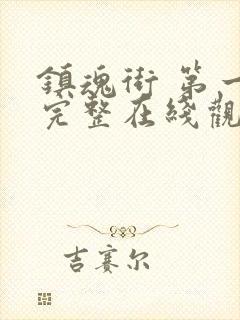 鎮魂街 第一
完整在綫觀
吉赛尔